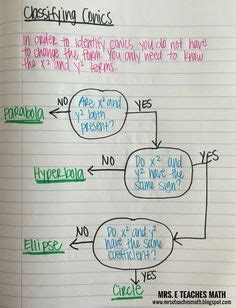 Classifying Conics
In order to identify conics you do not have
to change the form. You only need to know
the x² and y² terms.
NO
Are x² and
y² both
present?
YES
Parabola
NO
Do x² and
y² have the
same sign?
YES
Hyperbola
NO
Do x² and
y² have the same
coefficient?
Ellipse
YES
Circle
MRS. E TEACHES MATH
www.mrseteachesmath.blogspot.com